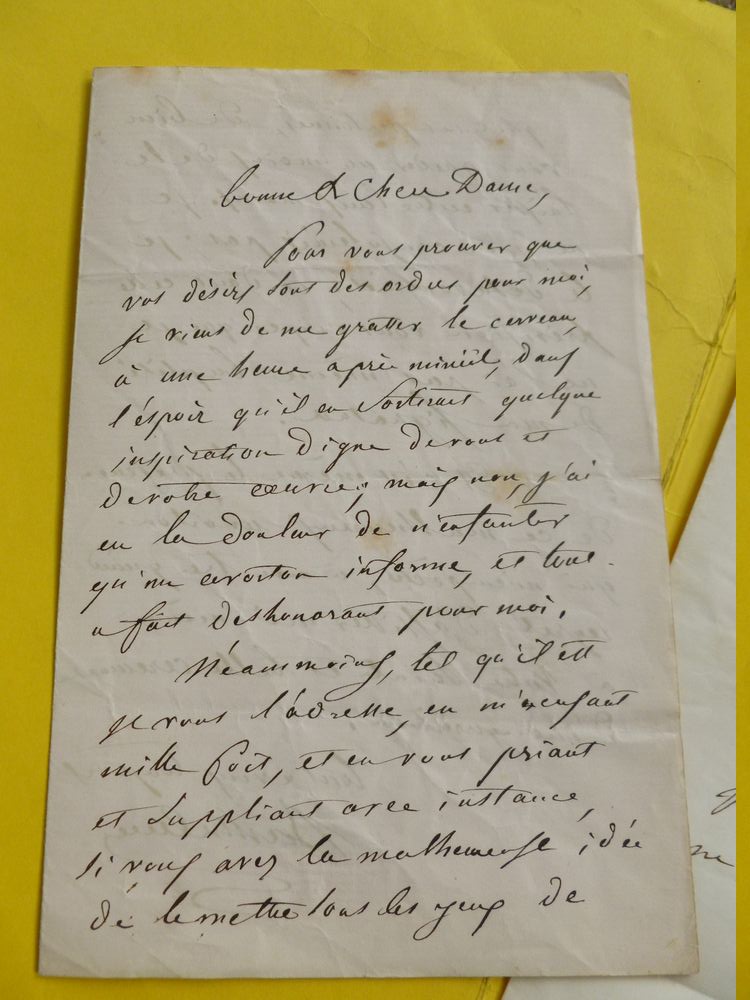 bonne & chere Dame,
Pour vous prouver que
vos désirs sont des ordres pour moi,
je viens de me gratter le cerveau,
à une heure après minuit, dans
l'éspoir qu'il en sortirait quelque
inspiration digne de vous et
de votre œuvre; mais non, j'ai
eu la douleur de n'enfanter
qu'un avorton informe, et tout-
a fait deshonorant pour moi.
Néanmoins, tel qu'il est
je vous l'adresse, en m'excusant
mille fois, et en vous priant
et suppliant avec instance,
si vous avez la malheureuse idée
de le mettre sous les yeux de